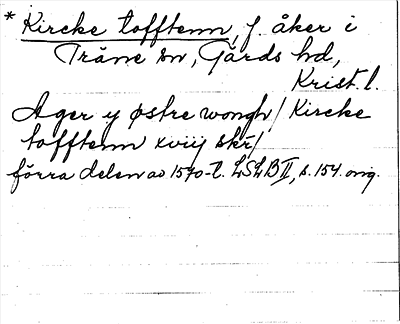 * Kircke tofftenn, f. åker i
Träne sn, Gärds hd,
Krist. l.
Ager y østre wongh / Kircke
tofftenn xviij skr /
förra delen av 1570-t. LSLB II, s. 154. orig.